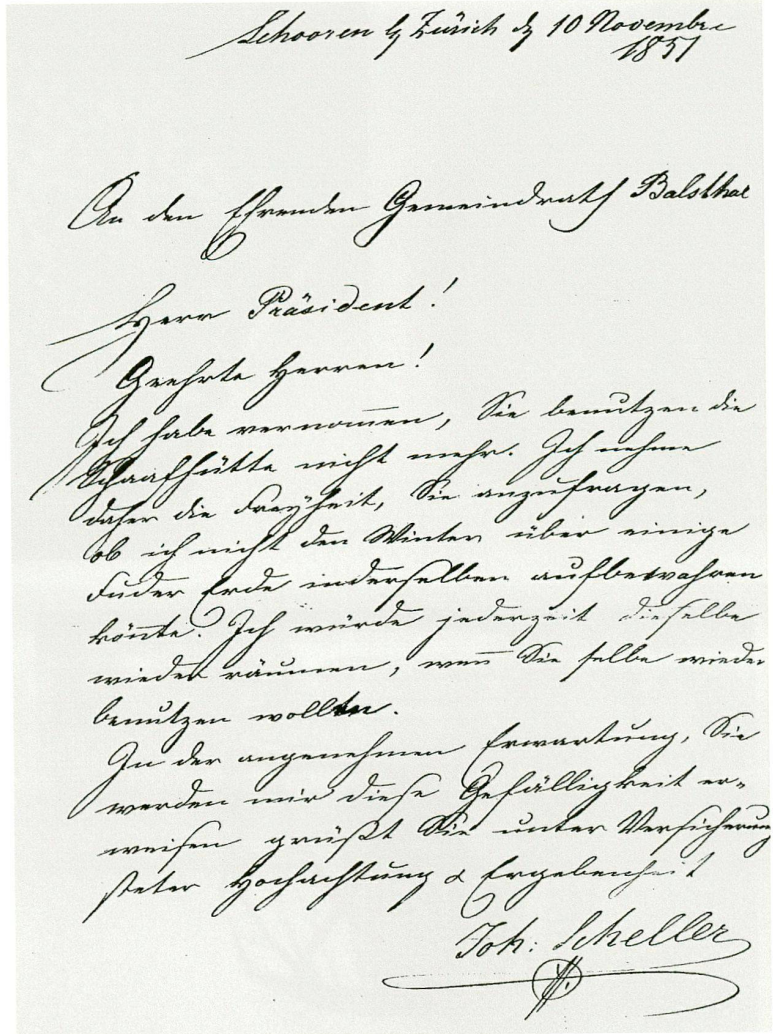 Schooren bz Zürich dz 10 Novembre
1851
An den Ehrenden Gemeindrath Balsthal
Herr Präsident!
Geehrte Herren!
Ich habe vernom̅en, Sie benutzen die
Schaafhütte nicht mehr. Ich nehme
daher die Freyheit, Sie anzufragen,
ob ich nicht den Winter über einige
Fuder Erde in derselben aufbewahren
kön̅te? Ich würde jederzeit dieselbe
wieder räumen, wen̅ Sie selbe wieder
benutzen wollten.
In der angenehmen Erwartung, Sie
werden mir diese Gefälligkeit er-
weisen grüßt Sie unter Versicherung
steter Hochachtung & Ergebenheit
Joh: Scheller